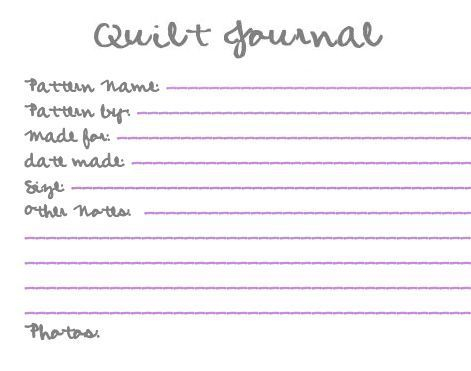 Quilt Journal
Pattern Name:
Pattern by:
Made for:
date made:
Size:
Other Notes:
Photos: